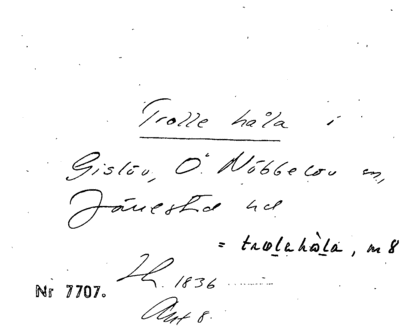 Trolle håla i
Gislöv, Ö. Nöbbelöv sn,
Järrestad hd
= trolahåla, m 8
Lh. 1836
Nr 7707.
Ant 8.